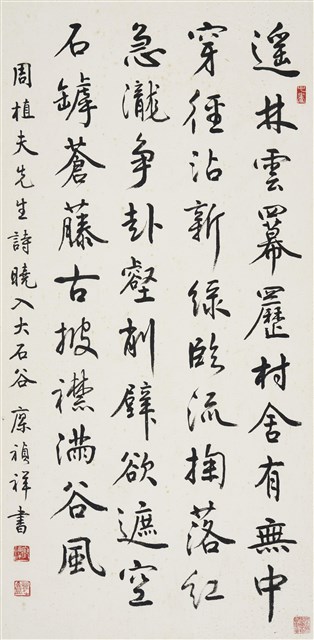 遙林雲羃䍥村舍有無中
穿徑沾新綠臨流掬落紅
急瀧爭赴壑削壁欲遮空
石罅蒼藤古披襟滿谷風
周植夫先生詩曉入大石谷 廖禎祥書